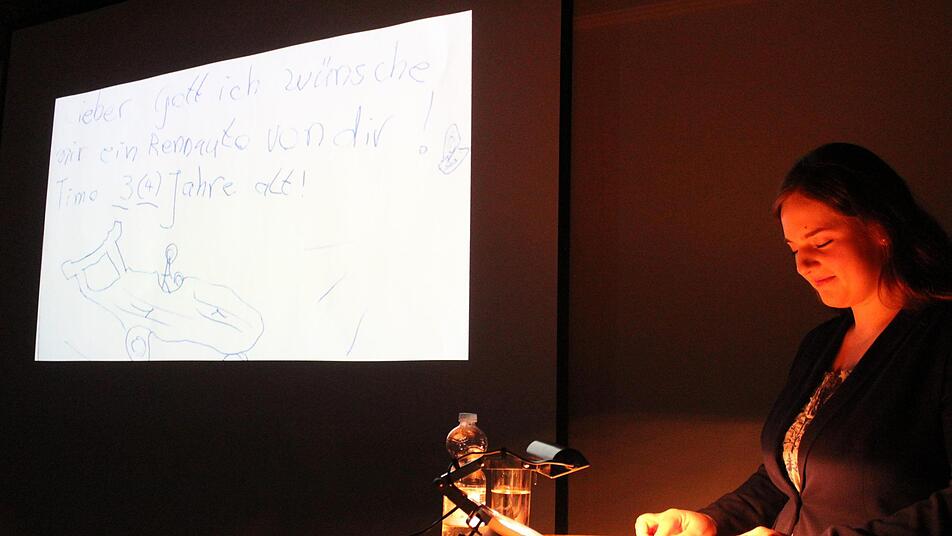 Lieber Gott ich wünsche
mir ein Rennauto von dir!
Timo 3(4) Jahre alt!